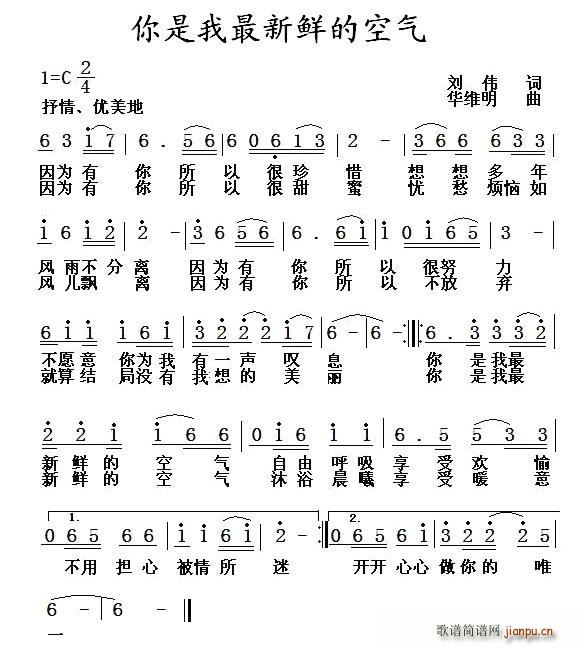 你是我最新鲜的空气
1=C 2/4
刘伟 词
抒情、优美地
华维明 曲
6 3 i 7 | 6. 5 6 | 6 0 6 1 3 | 2 - | 3 6 6 3 3 |
因为有 你 所 以 很珍 惜 想 想 多 年
因为有 你 所 以 很甜 蜜 忧 愁 烦恼如
i 6 i 2 | 2 - | 3 6 5 6 | 6. 6 i | i 0 i 6 5 | 3 - |
风 雨不 分 离 因 为 有 你 所 以 很努 力
风 儿飘 离 因 为 有 你 所 以 不放 弃
6 i i i 6 i | 3 2 2 2 i 7 | 6 - | 6 - :||: 6. 3 3 3 2 |
不愿意 你为我 有一声 叹 息 你 是我最
就算结 局没有 我想的 美 丽 你 是我最
2 2 i i 6 6 | 0 i 6 i i | 6. 5 5 3 3 |
新 鲜 的 空 气 自由 呼吸 享 受 欢 愉
新 鲜 的 空 气 沐浴 晨曦 享 受 暖 意
1. 2.
0 6 5 6 6 | i i 6 i | 2 - :|| 0 6 5 6 i | 3 2 2 2 5 |
不用 担心 被情 所 迷 开开 心心 做你 的 唯
6 - | 6 - ||
一
歌谱简谱网
jianpu.cn